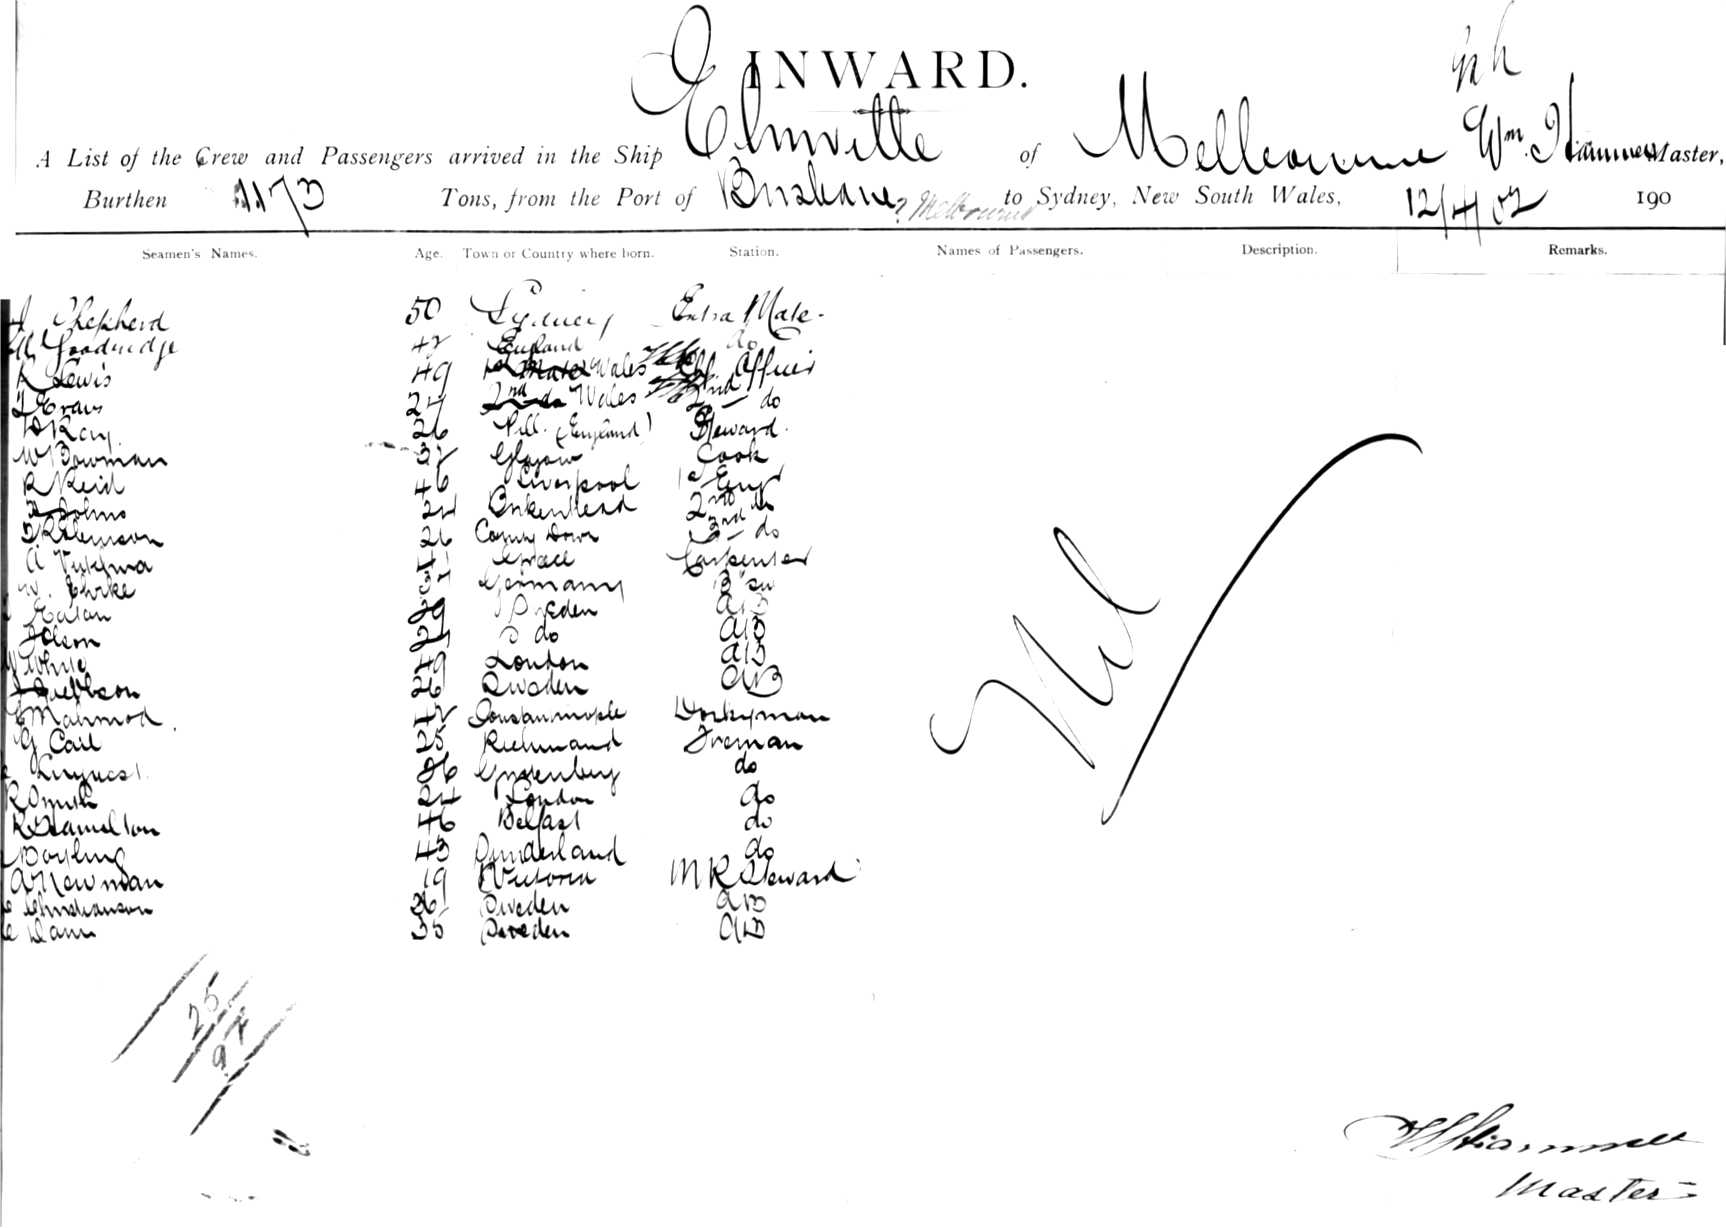 INWARD.
A List of the Crew and Passengers arrived in the Ship Elmville of Melbourne Wm. Hammer Master,
Burthen 1173 Tons, from the Port of Brisbane Melbourne to Sydney, New South Wales, 12/4/02 190
Seamen's Names. Age. Town or Country where born. Station. Names of Passengers. Description. Remarks.
Shepherd 50 Sydney Extra Mate.
Goodridge 42 England do
R Lewis 49 Wales Officer
Evans 24 Wales 2nd do
Ray. 26 Pill. (England) Steward.
W Bowman 32 Glasgow Cook
R Reid 46 Liverpool 1st Engr
24 Birkenhead 2nd do
Robinson 26 County Down 3rd do
41 Greece Carpenter
W. 37 Germany B'sn
29 Sweden AB
Olson 24 do AB
White 49 London AB
26 Sweden AB
Mahmod. 42 Constantinople Donkyman
G Cail 25 Richmond Fireman
26 do
R Smith 24 London do
R Hamilton 46 Belfast do
Bayling 43 Sunderland do
A Newman 19 Victoria M R Steward
Christianson 26 Sweden AB
35 Sweden AB
Nil
25
97
Master